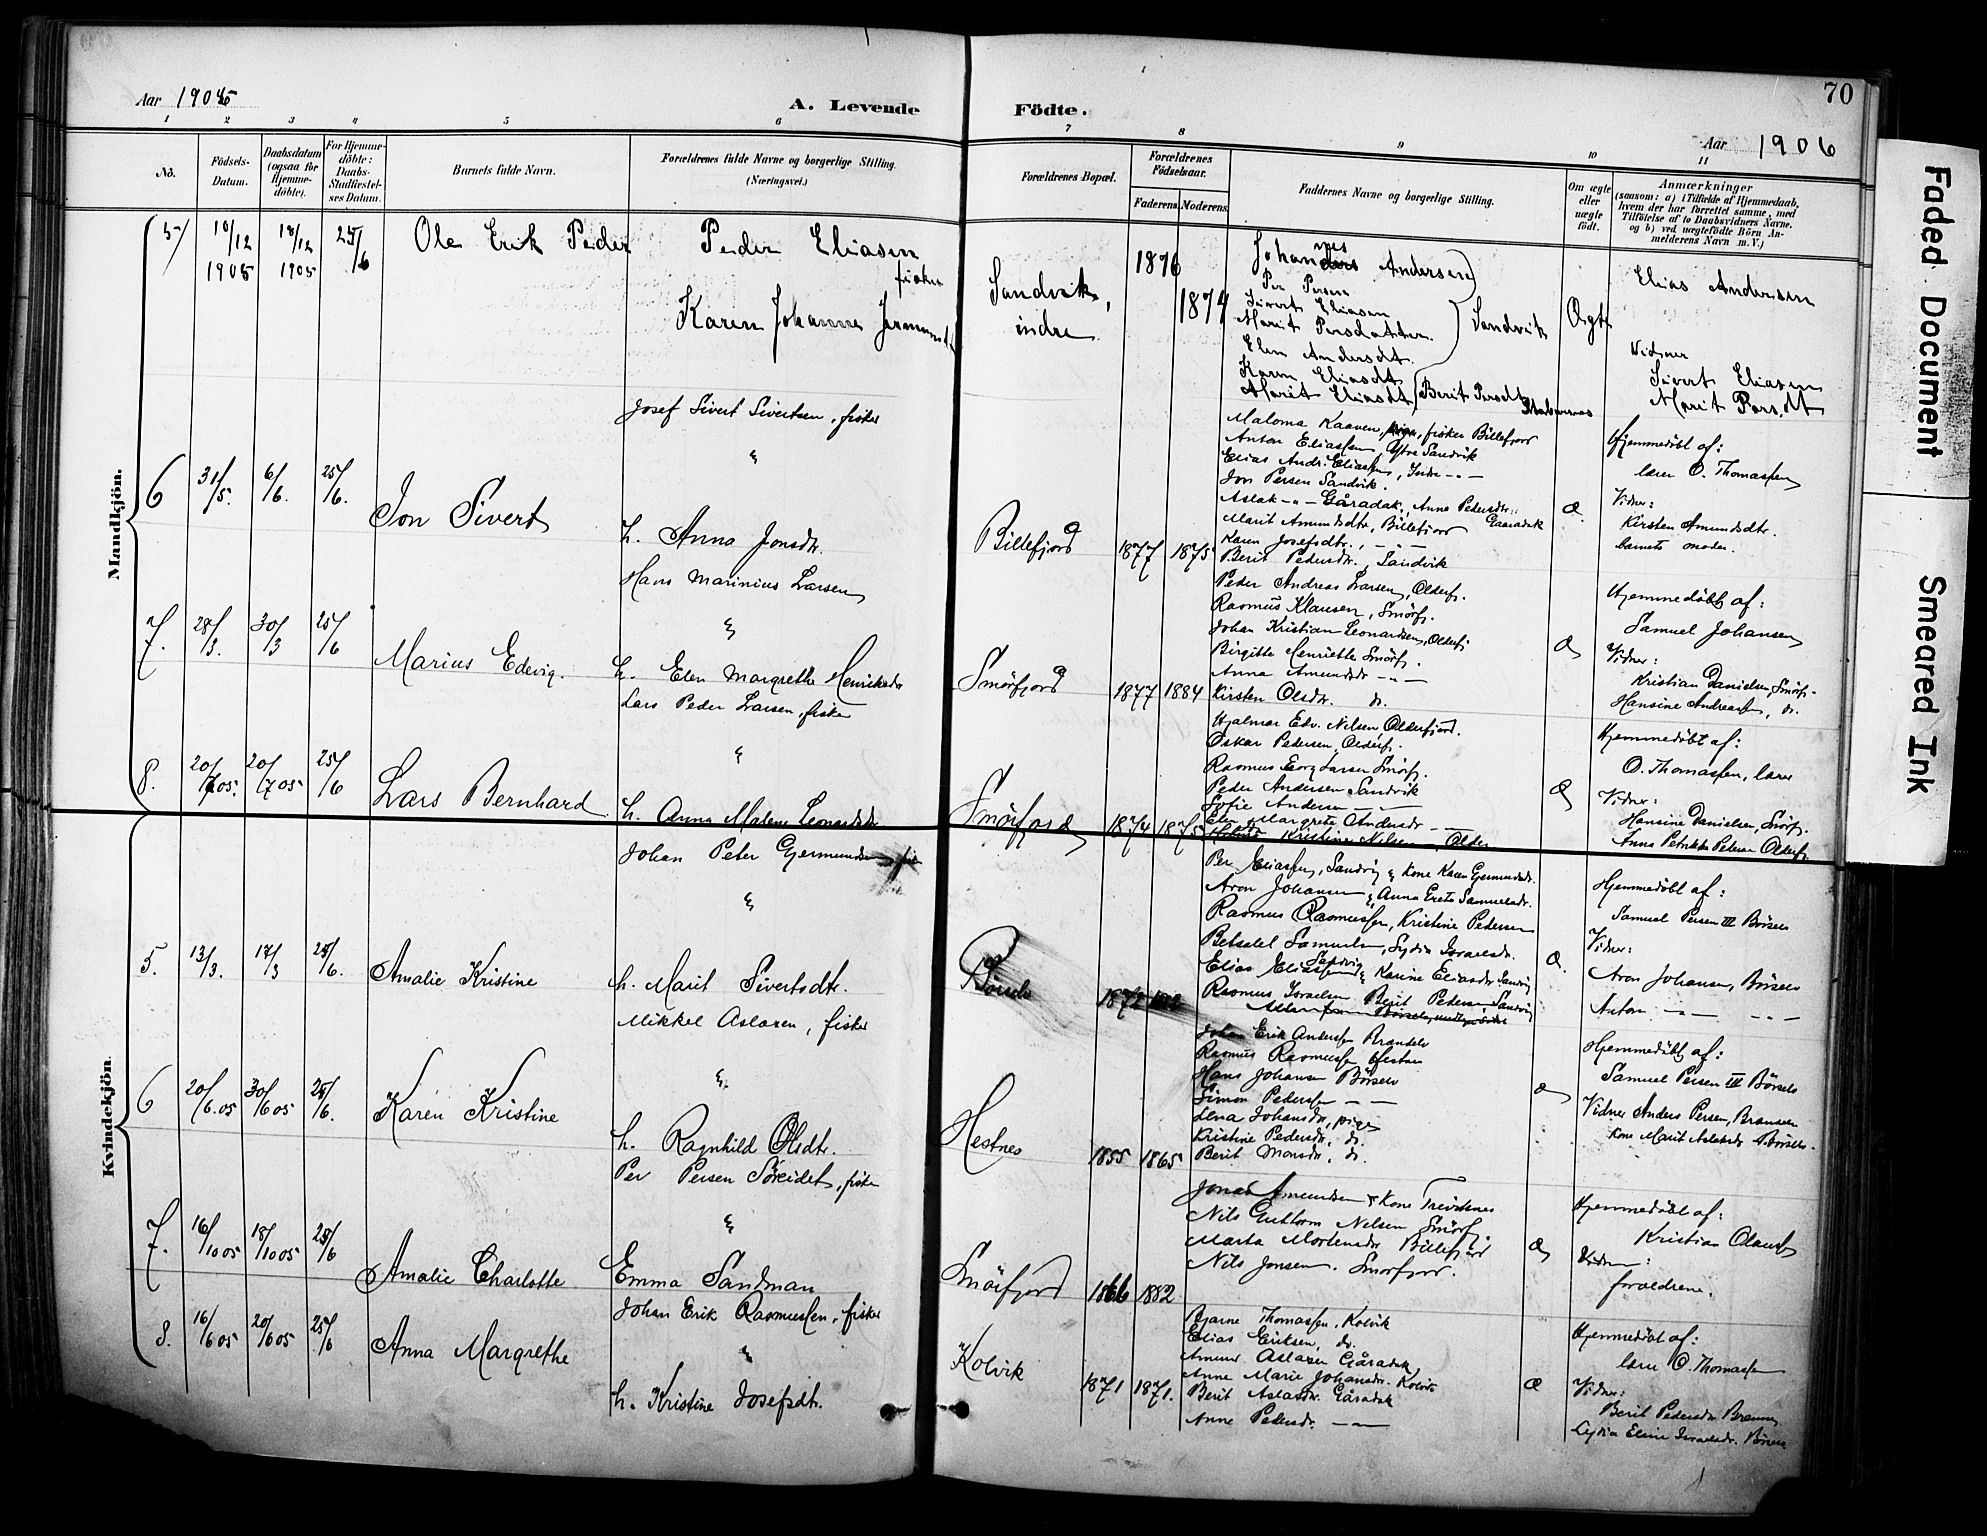 Aar 1906
A. Levende Födte.
70
Aar 1906
1 2 3 4 5 6 7 8 9 10 11
No.
Födsels-Datum.
Daabsdatum (ogsaa for Hjemme-döbte).
For Hjemme-döbte: Daabs-Stadfæstel-ses Datum.
Barnets fulde Navn.
Forældrenes fulde Navne og borgerlige Stilling. (Næringsvei.)
Forældrenes Bopæl.
Forældrenes Födselsaar.
Faderens. Moderens.
Faddernes Navne og borgerlige Stilling.
Om ægte eller uægte födt.
Anmærkninger
(saasom: a) i Tilfælde af Hjemmedaab, hvem der har forrettet samme, med Tilföielse af to Daabsvidners Navne. og b) ved uægtefödte Börn An-melderens Navn m. V.)
Mandkjön.
5 10/12 1905 18/12 1905 25/6
Ole Erik Peder
Peder Eliasen
fisker
Karen Johanne
Sandvik,
indre
1876
1874
Johannes Andersen
Per Persen
Sivert Eliasen
Marit Persdatter
Elen Andersdt.
Sandvik
Karen Eliasdt
Marit Eliasdt
Berit Persdt
Ægte
Elias Andersen
Vidner
Sivert Eliasen
Marit Persdt
6 31/5. 6/6. 25/6.
Jon Sivert
Josef Sivert Sivertsen, fisker
&
h. Anna Jonsdtr.
Billefjord
1877 1875
Maloma Kaaven, fisker Billefjord
Anton Eliassen, Ytre Sandvik
Elias Andr. Eliassen, Indre -"-
Jon Persen Sandvik.
Aslak -"- Gåradak, Anne Pedersdtr. Gaaradak
Marit Amundsdtr, Billefjord
Karen Josefsdtr., -"-
Berit Pedersdtr., Sandvik
Æ.
Hjemmedöbt af:
lærer O. Thomassen
Vidner:
Kirsten Amundsdtr.
barnets moder.
7. 28/3. 30/3 25/6
Marius Edevig.
Hans Marinius Larsen
&
h. Elen Margrethe Henriksdtr
Smörfjord
1877 1884
Peder Andreas Larsen, Olderfj.
Rasmus Klausen, Smörfj.
Johan Kristian Leonardsen, Olderfj
Birgitte Henriette Smörfj.
Anna Amundsdtr -"-
Kirsten Olsdtr. do.
Æ
Hjemmedöbt af:
Samuel Johansen
Vidner:
Kristian Danielsen, Smörfj.
Hansine Andreassen, do.
8. 20/7 05. 20/7 05 25/6
Lars Bernhard
Lars Peder Larsen, fisker
&
h. Anna Malene Leonardsdtr
Smörfjord
1874 1875
Hjalmar Edv. Nilsen Olderfjord.
Oskar Pedersen, Olderfj.
Rasmus Georg Larsen Smörfj.
Peder Andersen Sandvik
Sofie Andersen -"-
Elen Margrete Andersdtr -"-
Kristine Nilsen, Older
Æ
Hjemmedöbt af:
O. Thomassen, lærer
Vidner:
Hansine Danielsen, Smörfj.
Anna Petrikke Pedersen Olderfj.
Kvindekjön.
5. 13/3. 17/3 25/6.
Amalie Kristine
Johan Peter Germundsen
&
h. Marit Sivertsdtr.
Börselv
1872
Per Eliassen, Sandvig & Kone Karen Germundsdtr.
Aron Johansen & Anna Grete Samuelsdtr.
Rasmus Rasmussen, Kristine Pedersen
Betsalel Samuelsen, Lydia Israelsdtr.
Elias Eliassen Sandvig & Karine Eliasdtr Sandvig
Rasmus Israelsen Berit Pedersen Sandvig
Æ.
Hjemmedöbt af:
Samuel Persen III Börselv
Vidner:
Aron Johansen, Börselv
Anton -"- -"-
6 20/6.05 30/6 05 25/6.
Karen Kristine
Mikkel Aslaksen, fisker
&
h. Ragnhild Olsdtr.
Hestnes
1855 1865
Johan Erik Anderssen Brandelv
Rasmus Rasmussen Hestnes
Hans Johansen Börselv
Simon Pedersen -"-
Lena Johansdtr, pige
Kristine Pedersdtr, do.
Berit Monsdtr. do.
Æ
Hjemmedöbt af:
Samuel Persen III Börselv
Vidner Anders Persen,
Kone Marit Aslaksdtr Börselv
7. 16/10 05 18/10 05 25/6
Amalie Charlotte
Per Persen Söreidet, fisker
&
Emma Sandman
Smörfjord
1866 1882
Jonas Amundsen & Kone
Nils Guttorm Nelsen Smörfj.
Marta Mortensdtr Billefjord
Nils Jonsen. Smörfjord.
Æ
Hjemmedöbt af:
Kristian Olaussen
Vidner:
foreldrene.
8. 16/6 05 20/6 05 25/6
Anna Margrethe
Johan Erik Rasmussen, fisker
&
h. Kristine Josefsdtr.
Kolvik
1871 1871.
Bjarne Thomassen, Kolvik
Elias Eriksen, do.
Amund Aslaksen Gåradak,
Anne Marie Johansdtr. Kolvik
Berit Aslaksdtr. Gåradak
Anne Pedersdtr. -"-
Æ
Hjemmedöbt af:
lærer O. Thomassen
Vidner:
Berit Pedersdtr
Lydia Eline Israelsdtr. Börselv
Faded Document
Smeared Ink